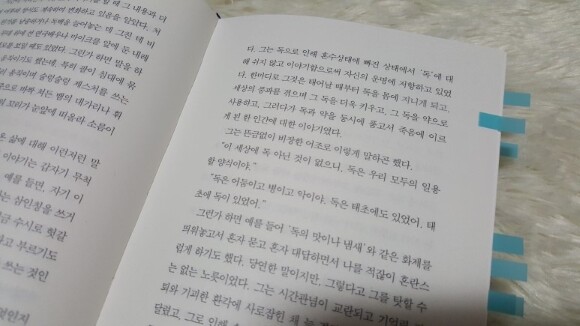 할 때 그 내용과 더
변화하고 있음을 알았다. 처
늘어놓는 데 그친 데 비
마이크를 앞에 둔 내레
그런가 하면 말을 하
특히 끝이 침대에 묶
캐스터를 쓰는
뱀의 대가리나 휘
눈앞에 떠올라 소름이
삶에 대해 이런저런 말
이야기는 갑자기 무척
예를 들면, 자기 이
삼인칭을 쓰지
수시로 헛갈
부르기도
쓰는 것인
다. 그는 독으로 인해 혼수상태에 빠진 상태에서 '독'에 대
해 쉬지 않고 이야기함으로써 자신의 운명에 저항하고 있었
다. 한마디로 그것은 태어날 때부터 독을 몸에 지니게 되고,
세상의 풍파를 겪으며 그 독을 더욱 키우고, 그 독을 약으로
사용하고, 그러다가 독과 약을 동시에 품고서 죽음에 이르
게 된 한 인간에 대한 이야기였다.
그는 뜬금없이 비장한 어조로 이렇게 말하곤 했다.
"이 세상에 독 아닌 것이 없으니, 독은 우리 모두의 일용
할 양식이야."
"독은 어둠이고 병이고 아이야. 독은 태초에도 있었어. 태
초에 독이 있었어."
그런가 하면 예를 들어 '독의 맛이나 냄새'와 같은 화제를
띄워놓고서 혼자 묻고 혼자 대답하면서 나를 적잖이 혼란스
럽게 하기도 했다. 당연한 말이지만, 그렇다고 그를 탓할 수
는 없는 노릇이었다. 그는 시간관념이 교란되고 기억의
피와 기괴한 환각에 사로잡힌 채
달렸고, 그로 인해